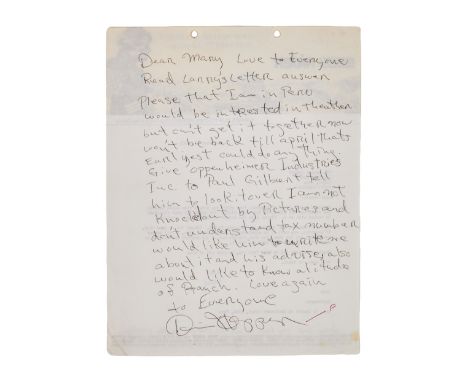 Dear Mary Love to Everyone
Read Larrys Letter answer
Please that I am in Peru
would be intrested in theather
but can't get it together now
won't be back till april thats
Earliest could do any thing.
Give oppenheimer Industries
Inc to Paul Gilbert tell
him to look it over I am not
Knockedout by Pictures and
don't understand tax number
would like him to write me
about it and his advise, also
would like to know altitude
of Ranch. Love again
to Everyone